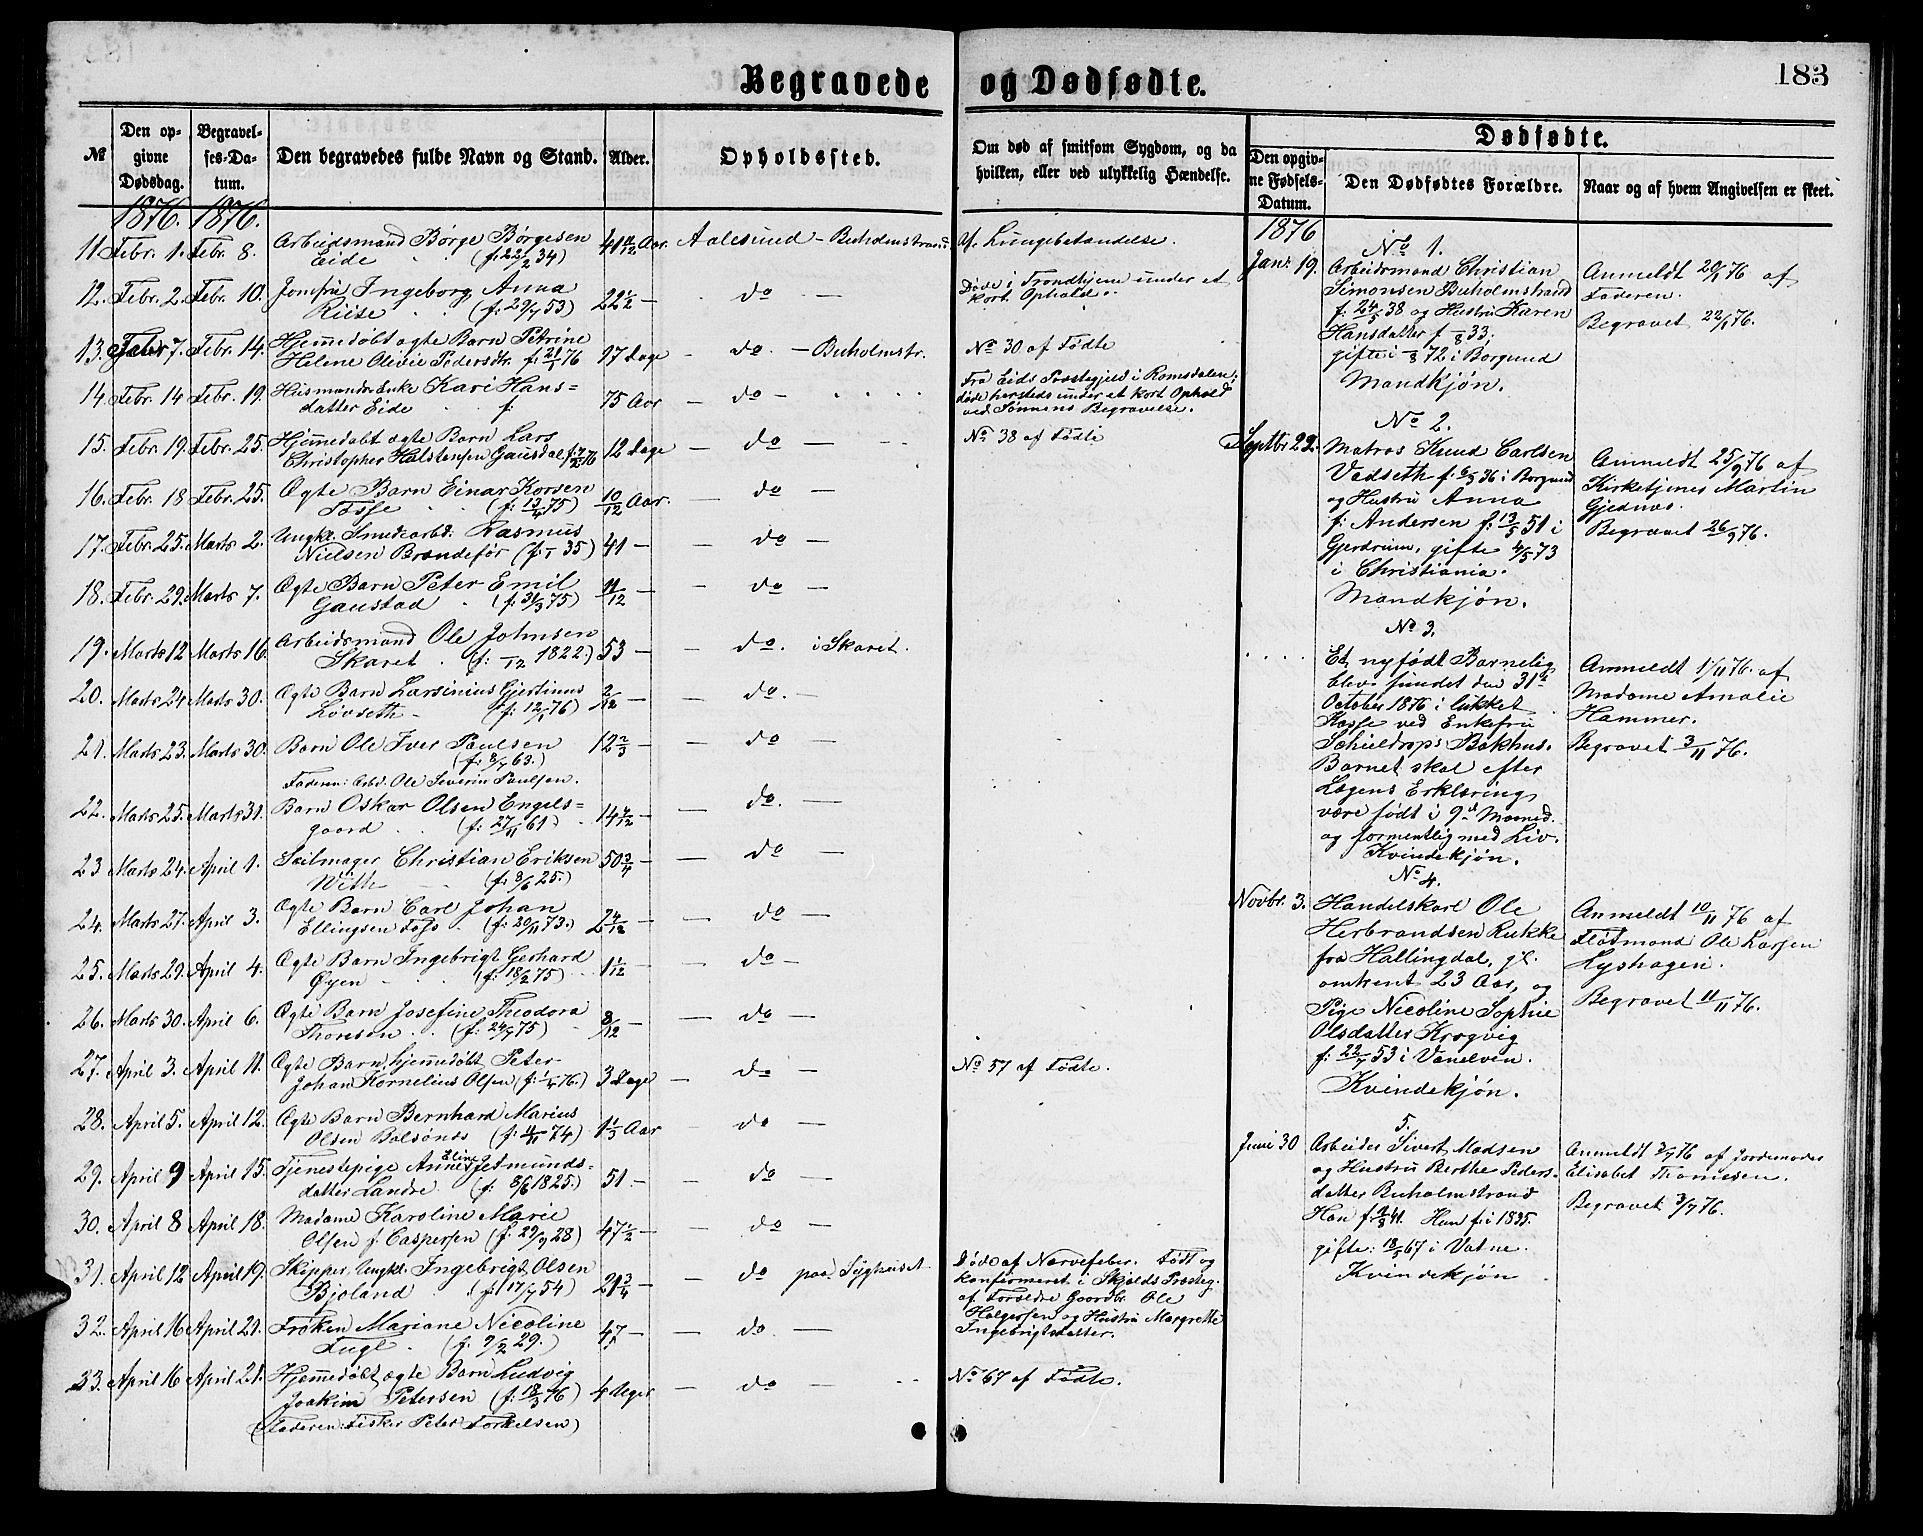 183
Begravede og Dødfødte.
№
Den opgivne Dødsdag.
Begravelses-Datum.
Den begravedes fulde Navn og Stand.
Alder.
Opholdssted.
Om død af smitsom Sygdom, og da hvilken, eller ved ulykkelig Hændelse.
Dødfødte.
Den opgivne Fødsels-Datum.
Den Dødfødtes Forældre.
Naar og af hvem Angivelsen er skeet.
1876. 1876.
11. Febr. 1. Febr. 8. Arbeidsmand Børge Børgesen 41 11/12 Aar. Aalesund – Buholmstrand Af Lungebetændelse.
Eide (f: 22/2 34)
12. Febr. 2. Febr. 10. Jomfru Ingeborg Anna 22 1/2 — do — Døde i Trondhjem under et
Riise (f: 29/7 53) kort Ophold.
13. Febr 7. Febr. 14. Hjemmedøbt ægte Barn Petrine 17 Dage — do. — Buholmstr. No 30 af Fødte
Helene Olivie Pedersdtr. f. 21/1 76
14. Febr. 14 Febr. 19. Husmands Enke Kari Hans= 75 Aar — do — Fra Eids Præstegjeld i Romsdalen,
datter Eide f: døde hersteds under et kort Ophold
ved Sønnens Begravelse.
15. Febr. 19. Febr. 25. Hjemmedøbt ægte Barn Lars 12 Dage — do — No 38 af Fødte
Christopher Halstensen Gausdal f. 7/2 76
16. Febr. 18 Febr. 25. Ægte Barn Einar Korsen 10/12 Aar. — do —
Bosse (f: 12/4 75)
17. Febr. 25. Marts 2. Ungkl. Smedearbd: Rasmus 41 — do —
Nielsen Brandefør (f: 35)
18. Febr. 29. Marts 7. Ægte Barn Peter Emil 11/12 — do —
Gaustad (f: 31/3 75)
19. Marts 12 Marts 16. Arbeidsmand Ole Johnsen 53 — do. i Skaret.
Skaret (f: –/12 1822.)
20. Marts 24 Marts 30. Ægte Barn Larsinius Gjertinus 2/12 — do. —
Løvseth (f: 12/1 76)
21. Marts 23. Marts 30. Barn Ole Iver Paulsen 12 2/3 — do —
(f: 8/7 63.)
Faderen: Arbd. Ole Severin Paulsen.
22. Marts 25. Marts 31. Barn Oskar Olsen Engels= 14 4/12 — do. —
gaard (f: 27/11 61)
23 Marts 24. April 1. Seilmager Christian Eriksen 50 3/4 — do —
With (f: 3/6 25.)
24. Marts 27. April 3. Ægte Barn Carl Johan 2 4/12 — do —
Ellingsen Foss (f: 20/11 73.)
25. Marts 29. April 4. Ægte Barn Ingebrigt Gerhard 1 1/12 — do —
Øyen (f: 18/2 75)
26. Marts 30. April 6. Ægte Barn Josefine Theodora 8/12 — do —
Thonsen (f: 24/7 75)
27. April 3. April 11. Ægte Barn, hjemmedøbt Peter 3 Dage — do — No 57 af Fødte.
Johan Kornelius Olsen (f: 1/4 76.)
28. April 5. April 12. Ægte Barn Bernhard Marius 1 1/3 Aar — do —
Olsen Bolsønes (f: 4/11 74)
29. April 9 April 15. Tjenestepige Anne Eline Jetmunds= 51. — do —
datter Landre (f: 8/6 1825.)
30. April 8 April 18. Madame Karoline Marie 47 1/2 — do —
Olsen f. Caspersen (f: 29/9 28)
31. April 12 April 19. Skipper, Ungkl. Ingebrigt Olsen 21 3/4 — do paa Syghuset Døde af Nervefeber. Født og
Bjoland (f: 17/7 54) konfirmeret i Skjolds Præsteg.
af Forældre Gaardbr. Ole
Holgersen og Hustru Margrethe
Ingebrigtsdatter.
32. April 16 April 21. Frøken Mariane Nicoline 47 — do —
Fugl (f: 9/2 29.)
33. April 16 April 21. Hjemmedøbt ægte Barn Ludvig 4 Uger — do — No 67 af Fødte.
Joakim Petersen (f: 18/3 76)
(Faderen: Fisker Peter Torkelsen)
1876
No 1.
Janr. 19. Arbeidsmand Christian
Simonsen Buholmstrand
f: 24/5 38 og Hustru Karen
Hansdatter f –/8 33,
gifte i –/8 72 i Borgund
Mandkjøn.
Anmeldt 20/1 76 af
Faderen.
Begravet 22/1 76.
No 2.
Septbr 22. Matros Knud Carlsen
Vadseth f: 6/9 36 i Borgund
og Hustru Anna
f: Andersen f: 13/5 51 i
Gjerdrum, gifte 4/5 73
i Christiania.
Mandkjøn.
Anmeldt 25/9 76 af
Kirketjener Martin
Gjednæs.
Begravet 26/9 76.
No 3.
Et nyfødt Barnelig
blev fundet den 31te
October 1876 i lukket
Kasse ved Enkefru
Schieldrops Bakhus.
Barnet skal efter
Lægens Erklæring
være født i 9de Maaned.
og formentlig med Liv.
Kvindekjøn.
Anmeldt 1/11 76. af
Madame Amalie
Hammer.
Begravet 3/11 76.
No 4.
Novbr. 3. Handelskarl Ole
Herbrandsen Rukke
fra Hallingdal, gl.
omtrent 23 Aar, og
Pige Nicoline Sophie
Olsdatter Krogvig
f: 22/7 53 i Vanelven.
Kvindekjøn.
Anmeldt 10/11 76 af
Fløtmand Ole Larsen
Lyshagen.
Begravet 11/11 76.
5.
Juni 30 Arbeider Sivert Madsen
og Hustru Berthe Peders=
datter Buholmstrand
Han f: 9/3 41. Hun f: i 1835.
gifte: 18/5 67 i Vatne.
Kvindekjøn
Anmeldt 3/7 76 af Jordemoder
Elisabet Thomesen.
Begravet 3/7 76.